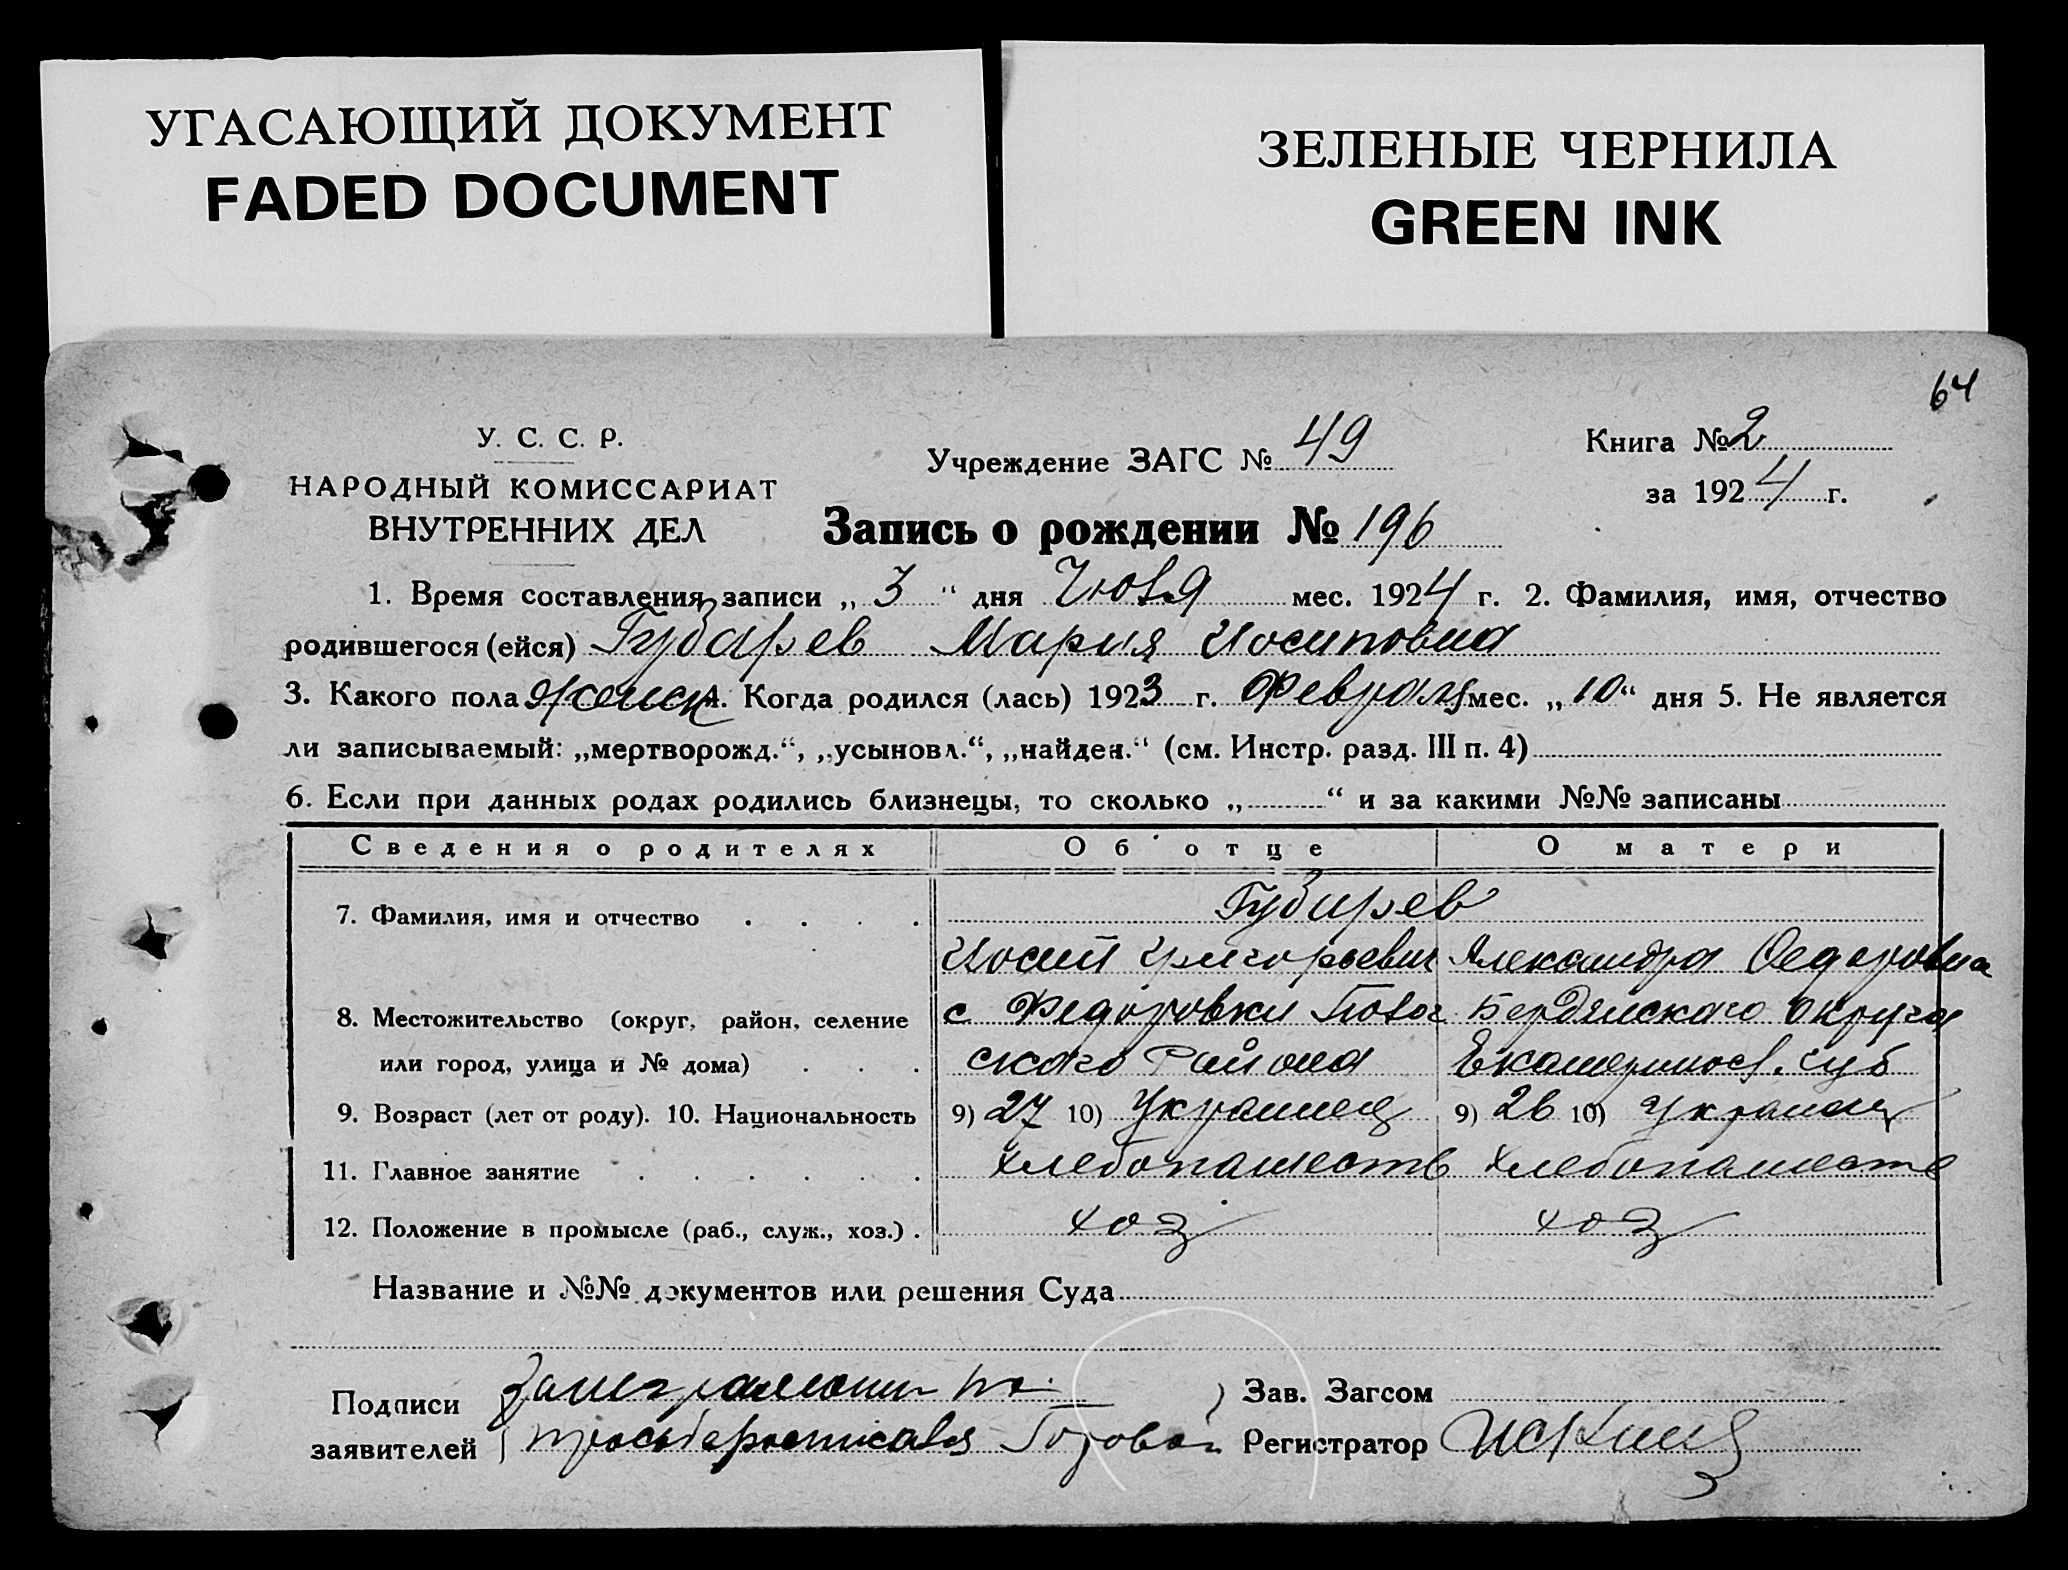 УГАСАЮЩИЙ ДОКУМЕНТ
FADED DOCUMENT
ЗЕЛЕНЫЕ ЧЕРНИЛА
GREEN INK
64
У. С. С. Р.
НАРОДНЫЙ КОМИССАРИАТ
ВНУТРЕННИХ ДЕЛ
Учреждение ЗАГС № 49
Книга № 2
за 1924 г.
Запись о рождении № 196
1. Время составления записи „ 3 “ дня Июля мес. 1924 г. 2. Фамилия, имя, отчество
родившегося (ейся) Губарев Мария Иосиповна
3. Какого пола женск 4. Когда родился (лась) 1923 г. Февраля мес. „ 10 “ дня 5. Не является
ли записываемый: „мертворожд.“, „усыновл.“, „найден.“ (см. Инстр. разд. III п. 4)
6. Если при данных родах родились близнецы, то сколько „ “ и за какими №№ записаны
Сведения о родителях Об отце О матери
7. Фамилия, имя и отчество Губарев
Иосип Григорьевич Александра Федоровна
8. Местожительство (округ, район, селение с Федоровки Бердянского округа
или город, улица и № дома) ского Района Екатериносл. губ
9. Возраст (лет от роду). 10. Национальность 9) 27 10) Украинец 9) 26 10) Украинц
11. Главное занятие Хлебопашеств Хлебопашеств
12. Положение в промысле (раб., служ., хоз.) хоз хоз
Название и №№ документов или решения Суда
Подписи по Зав. Загсом
заявителей просьбе росписался Регистратор